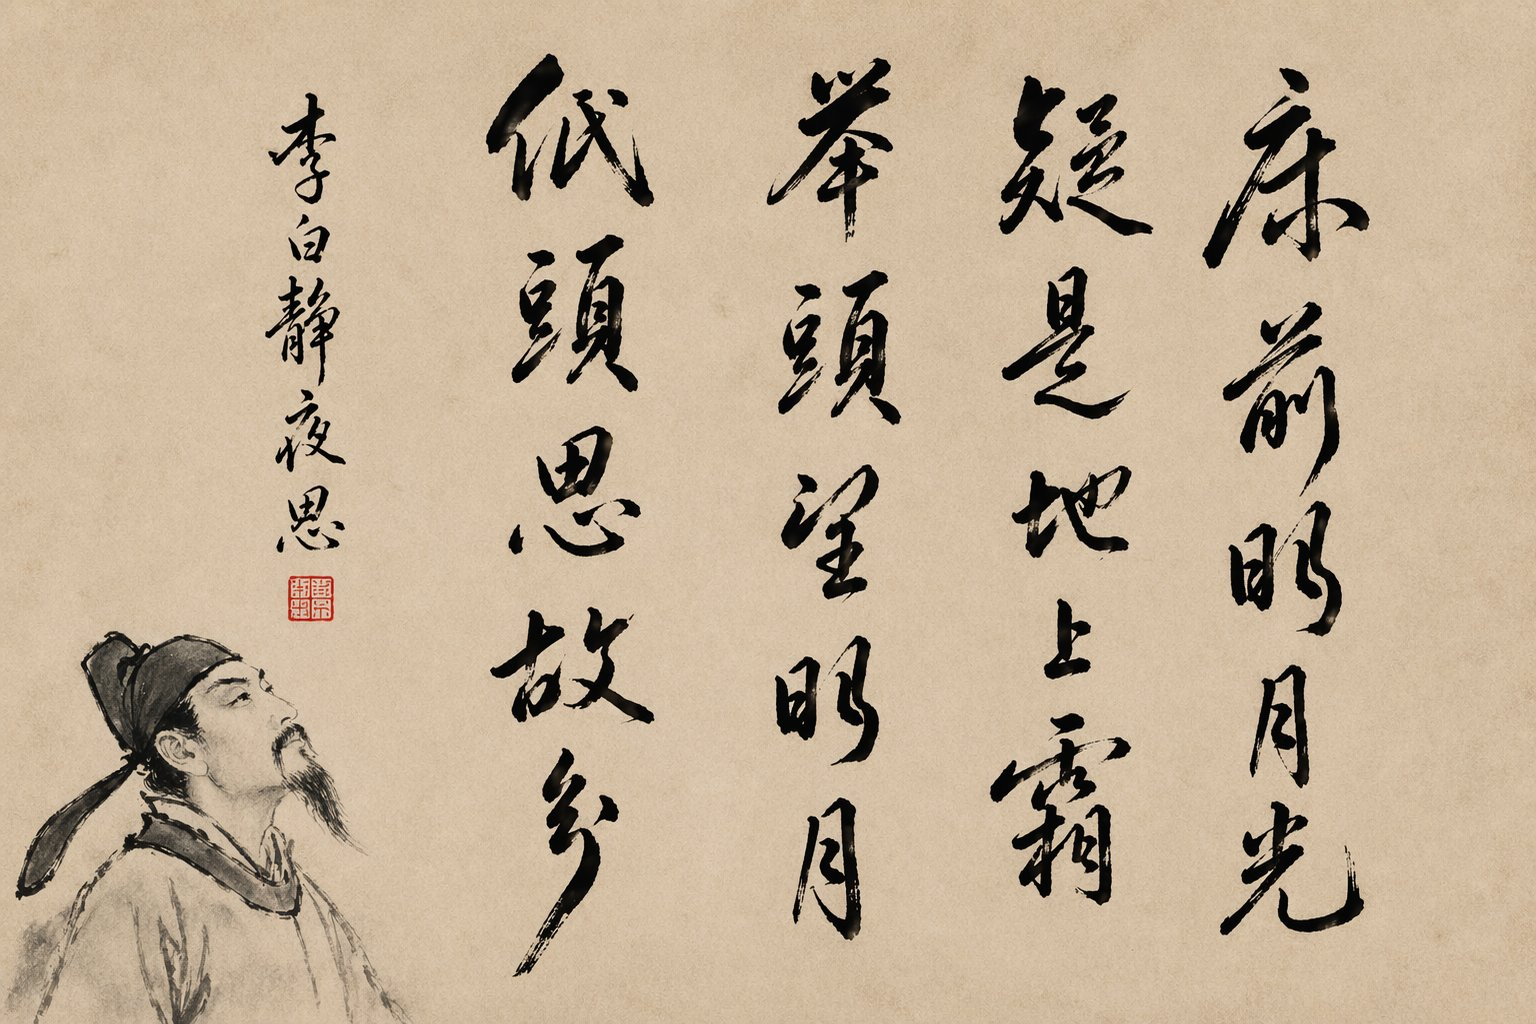 床前明月光
疑是地上霜
举頭望明月
低頭思故乡
李白靜夜思